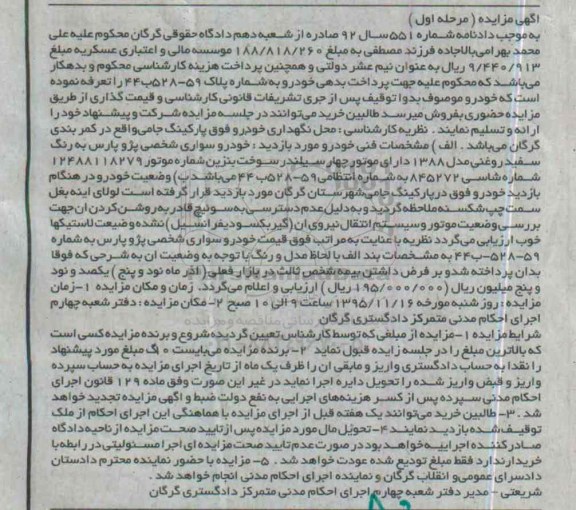 آگهی مزایده ( مرحله اول )
به موجب دادنامه شماره ۵۵۱ سال ۹۲ صادره از شعبه دهم دادگاه حقوقی گرگان محکوم علیه علی
محمد بهرامی بالاجاده فرزند مصطفی به مبلغ ۱۸۸/۸۱۸/۲۶۰ موسسه مالی و اعتباری عسکریه مبلغ
۹/۴۴۰/۹۱۳ ریال به عنوان نیم عشر دولتی و همچنین پرداخت هزینه کارشناسی محکوم و بدهکار
می باشد که محکوم علیه جهت پرداخت بدهی خودرو به شماره پلاک ۵۹-۵۲۸ب۴۴ را تعرفه نموده
است که خودرو موصوف بدوا توقیف پس از جری تشریفات قانونی کارشناسی و قیمت گذاری از طریق
مزایده حضوری بفروش میرسد طالبین خرید می توانند در جلسه مزایده شرکت و پیشنهاد خود را
ارائه و تسلیم نمایند . نظریه کارشناسی : محل نگهداری خودرو فوق پارکینگ جامی واقع در کمر بندی
گرگان می باشد . الف ) مشخصات فنی خودرو مورد بازدید : خودرو سواری شخصی پژو پارس به رنگ
سفید روغنی مدل ۱۳۸۸ دارای موتور چهار سیلندر سوخت بنزین شماره موتور ۱۲۴۸۸۱۱۸۲۷۹
شماره شاسی ۸۴۵۲۷۲ به شماره انتظامی ۵۹-۵۲۸ب۴۴ می باشد ب ) وضعیت خودرو در هنگام
بازدید خودرو فوق در پارکینگ جامی شهرستان گرگان مورد بازدید قرار گرفته است لولای اینه بغل
سمت چپ شکسته ملاحظه گردید و به دلیل عدم دسترسی به سوئیچ قادر به روشن کردن ان جهت
بررسی وضعیت موتور و سیستم انتقال نیروی ان (گیربکس و دیفرانسیل ) نشده وضیعت لاستیکها
خوب ارزیابی می گردد نظریه با عنایت به مراتب فوق قیمت خودرو سواری شخصی پژو پارس به شماره
۵۹-۵۲۸ب۴۴ به مشخصات بند الف با لحاظ مدل و رنگ با توجه به وضعیت ان به شرحی که فوقا
بدان پرداخته شد و بر فرض داشتن بیمه شخص ثالث در بازار فعلی ( آذر ماه نود و پنج ) یکصد و نود
و پنج میلیون ریال (۱۹۵/۰۰۰/۰۰۰ ریال ) ارزیابی و اعلام می گردد. زمان و مکان مزایده ۱-زمان
مزایده : روز شنبه مورخه ۱۳۹۵/۱۱/۱۶ ساعت ۹ الی ۱۰ صبح ۲- مکان مزایده : دفتر شعبه چهارم
اجرای احکام مدنی متمرکز دادگستری گرگان
شرایط مزایده ۱-مزایده از مبلغی که توسط کارشناس تعیین گردیده شروع و برنده مزایده کسی است
که بالاترین مبلغ را در جلسه زایده قبول نماید ۲- برنده مزایده می بایست ۱۰٪ مبلغ مورد پیشنهاد
را نقدا به حساب دادگستری واریز و مابقی ان را ظرف یک ماه از تاریخ اجرای مزایده به حساب سپرده
واریز و قبض واریز شده را تحویل دایره اجرا نماید در غیر این صورت وفق ماده ۱۲۹ قانون اجرای
احکام مدنی سپرده پس از کسر هزینه های اجرایی به نفع دولت ضبط و آگهی مزایده تجدید خواهد
شد . ۳- طالبین خرید می توانند یک هفته قبل از اجرای مزایده با هماهنگی این اجرای احکام از ملک
توقیف شده بازدید نمایند ۴- تحویل مال مورد مزایده پس از تایید صحت مزایده از ناحیه دادگاه
صادر کننده اجراییه خواهد بود در صورت عدم تایید صحت مزایده ای اجرا مسئولیتی در رابطه با
خریدار ندارد فقط مبلغ تودیع شده عودت خواهد شد . ۵- مزایده با حضور نماینده محترم دادستان
دادسرای عمومی و انقلاب گرگان و نماینده اجرای احکام مدنی انجام خواهد شد .
شریعتی - مدیر دفتر شعبه چهارم اجرای احکام مدنی متمرکز دادگستری گرگان